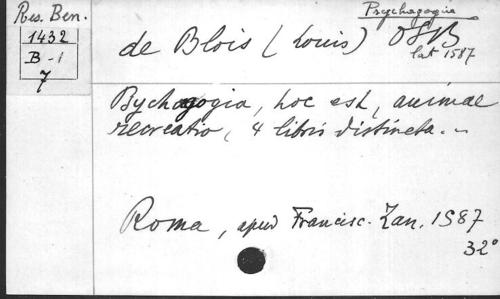 Res. Ben.
1432
B-1
7
Psychagogia
de Blois (Louis) OSB
lat 1587
Bychagogia, hoc est, animae
recreatio, 4 libris distincta.-
Roma, apud Francisc. Zan. 1587
32°